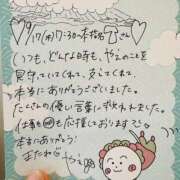 9/17(水)7:30〜本指名 びさん
いつも、どんな時も、やえのことを
見守ってくれて、支えてくれて、
本当にありがとうございました。
たくさんの優しい言葉に救われました。
仕事も応援しております。
本当にありがとう!
またねやえ